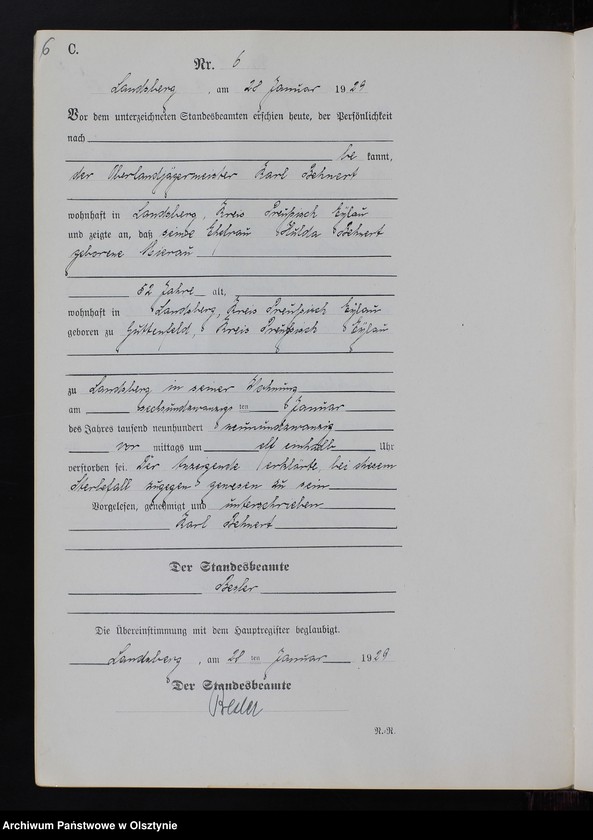 6 C.
Nr. 6
Landsberg, am 28 Januar 1929
Vor dem unterzeichneten Standesbeamten erschien heute, der Persönlichkeit
nach
be kannt,
der Oberlandjägermeister Karl Behnert
wohnhaft in Landsberg, Kreis Preußisch Eylau
und zeigte an, daß seine Ehefrau Hulda Behnert
geborene
52 Jahre alt,
wohnhaft in Landsberg, Kreis Preußisch Eylau
geboren zu Guttenfeld, Kreis Preußisch Eylau
zu Landsberg in seiner Wohnung
am sechsundzwanzigs ten Januar
des Jahres tausend neunhundert neunundzwanzig
vor mittags um elf einhalb Uhr
verstorben sei. Der Anzeigende erklärte, bei diesem
Sterbefall zugegen gewesen zu sein
Vorgelesen, genehmigt und unterschrieben
Karl Behnert
Der Standesbeamte
Besler
Die Übereinstimmung mit dem Hauptregister beglaubigt.
Landsberg, am 28 ten Januar 1929
Der Standesbeamte
Besler
R.-R.
Archiwum Państwowe w Olsztynie